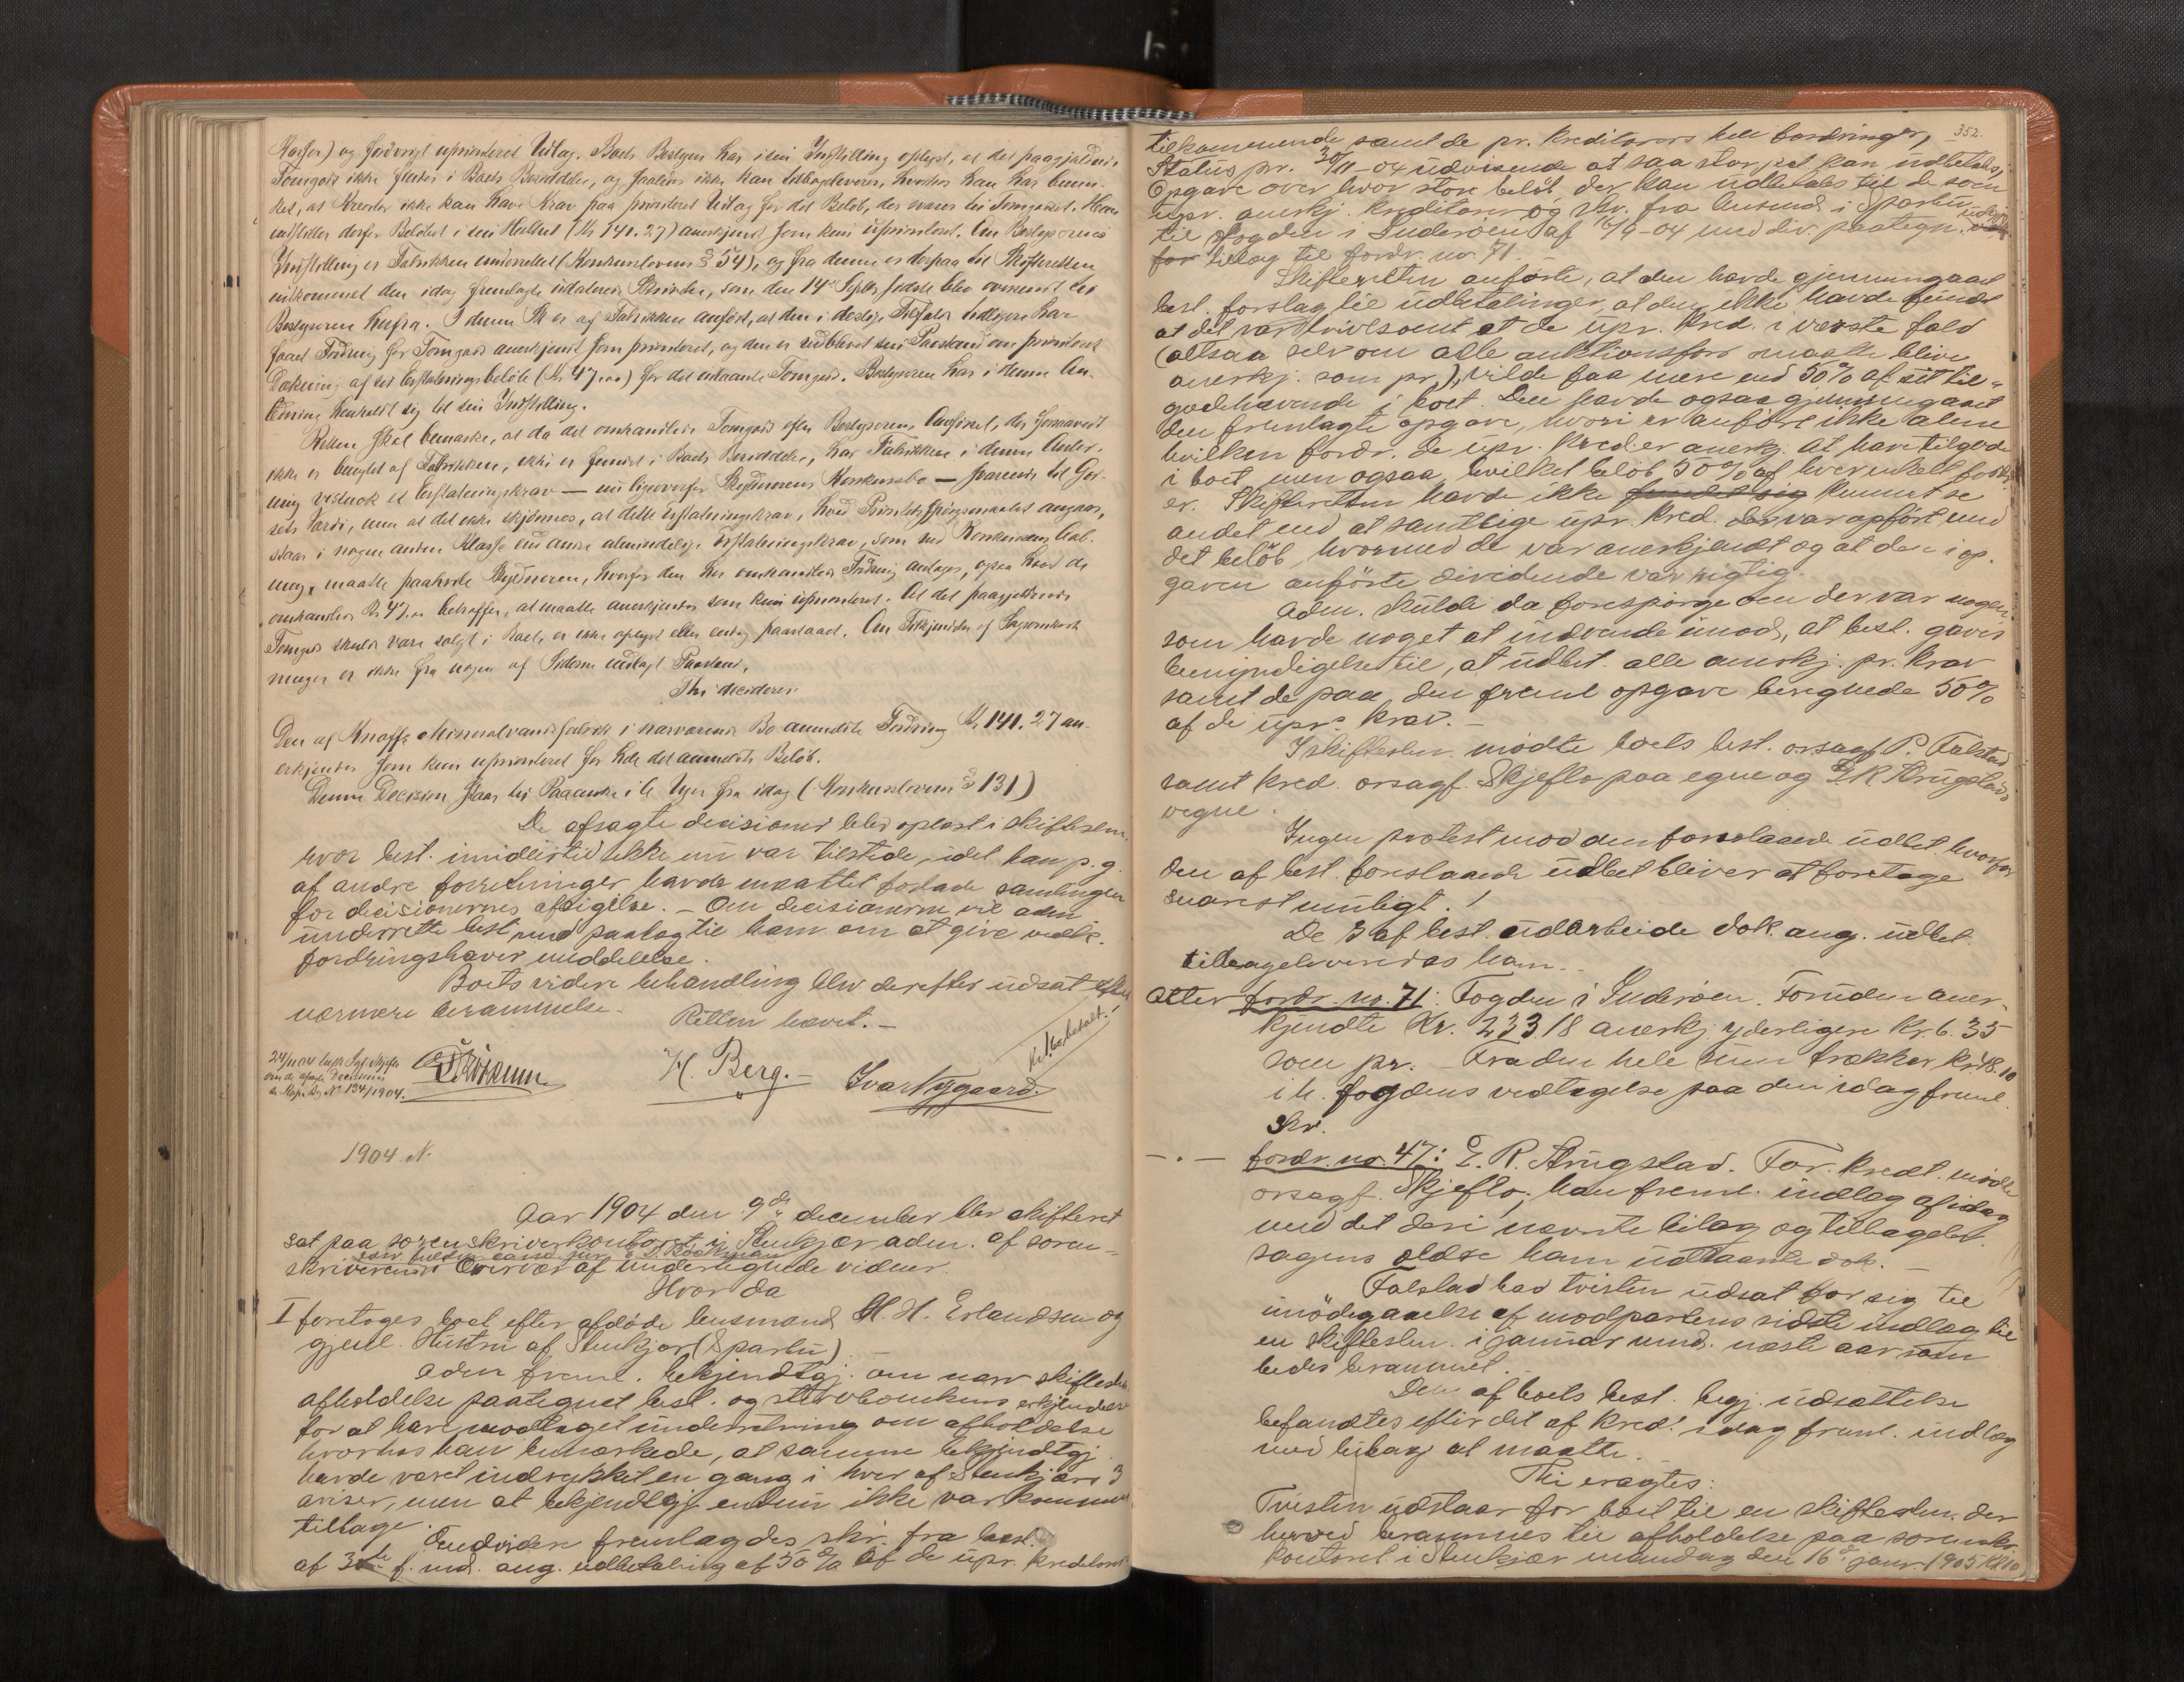 Kasser) og forøvrigt uprioriteret Udlæg. Boets Bestyrer har i sin Indstilling oplyst, at det paagjældende
Tomgods ikke findes i Boets Besiddelse, og saaledes ikke kan tilbageleveres, hvorhos han har bemær-
ket, at Kreditor ikke kan have Krav paa prioriteret Udlæg for det Beløb, der svarer til Tomgodset. Han
indstiller derfor Beløbet i sin Helhed (Kr 141.27) anerkjendt som kun uprioriteret. Om Bestyrerens
Indstilling er Fabrikken underrettet (Konkurslovens § 54), og fra denne er derpaa til Skifteretten
indkommet den idag fremlagte udaterede Skrivelse, som den 14de Septbr. sidstl. blev oversendt
Bestyreren herfra. I denne Skr er af Fabrikken anført, at den i deslige Tilfælde tidligere har
faaet Fordring for Tomgods anerkjendt som prioriteret, og den er vedblevet sin Paastand om prioriteret
Dækning af det Erstatningsbeløb (Kr. 47.00) for det udlaante Tomgods. Bestyreren har i denne An-
ledning henholdt sig til sin Indstilling.
Retten skal bemærke, at da det omhandlede Tomgods efter Bestyrerens Anførsel, der forøvrigt
ikke er benægtet af Fabrikken, ikke er fundet i Boets Besiddelse, har Fabrikken i denne Anled-
ning vistnok et Erstatningskrav — ligeoverfor Skyldnerens Konkursbo — svarende til God-
sets Værdi, men at det ikke skjønnes, at dette Erstatningskrav, hvad Prioritetsspørgsmaalet angaar,
staar i nogen anden Klasse end andre almindelige Erstatningskrav, som ved Konkursens Aab-
ning maatte paahvile Skyldneren, hvorfor den her omhandlede Fordring antages, ogsaa hvad de
omhandlede Kr 47.00 betræffer, at maatte anerkjendes som kun uprioriteret. At det paagjældende
Tomgods skulde være solgt i Boet, er ikke oplyst eller endog paastaaet. Om Tilkjendelse af Sagsomkost-
ninger er ikke fra nogen af Siderne nedlagt Paastand.
Thi decideres:
Den af Knoffs Mineralvandfabrik i nærværende Bo anmeldte Fordring Kr 141.27 an-
erkjendes som kun uprioriteret for hele det anmeldte Beløb.
Denne Decision staar til Paaanke i 6 Uger fra idag (Konkursloven § 131)
De afsagte decisioner blev oplæst i skiftesaml.
hvor best. imidlertid ikke nu var tilstede, idet han p. g.
af andre forretninger havde maattet forlade samlingen
før decisionernes afsigelse. – Om decisionerne vil adm
underrette best. med paalæg til ham om at give vedk.
fordringshaver meddelelse.
Boets videre behandling blev derefter udsat efter
nærmere berammelse.
Retten hævet. –
H. Berg. –
Ivar Nygaard.
1904 N.
Aar 1904 den 9de december blev skifteret
sat paa sorenskriverkontoret i Stenkjær adm. af soren-
skriverens
Overvær af undertegnede vidner.
Hvorda
I foretoges boet efter afdøde lensmand H. H. Erlandsen og
gjenl. Hustru af Stenkjær (Sparbu).
Adm freml. bekjendtgj. om nærv skiftesaml.
afholdelse paategnet best. og stervboenkens erkjendelse
for at have modtaget underretning om afholdelse
hvorhos han bemærkede, at samme bekjendtgj.
havde været indrykket en gang i hver af Stenkjærs 3
aviser, men at bekjendtgj. endnu ikke var kommet
tilbage.
Endvidere fremlagdes skr. fra best.
af 3de f. md. ang. udbetaling af 50 % af de upr. kreditorer
352.
tilkommende samt de pr. kreditorers hele fordringer,
Status pr. 30/11-04 udvisende at saa stor pct kan udbetales,
Opgave over hvor store beløb, der kan udbetales til de som
upr. anerkj. kreditorer og skr. fra lensmd. i Sparbu
til fogden i Inderøen af 16/9-04 med div. paategn.
for tillæg til fordr. no. 71. –
Skifteretten anførte, at den havde gjennemgaaet
best. forslag til udbetalinger, at den ikke havde fundet
at det var tvivlsomt at de upr. kred. i værste fald
(altsaa selv om alle auktionsford maatte blive
anerkj. som pr.), vilde faa mere end 50% af sit til-
godehavende i boet. Den havde ogsaa gjennemgaaet
den fremlagte opgave, hvori er anført ikke alene
hvilken fordr. de upr. kred. er anerkj. at have tilgode
i boet men ogsaa hvilket beløb 50 % af hver enkelt fordr.
er. Skifteretten havde ikke fundet sig kunnet se
andet end at samtlige upr. kred. der var opført med
det beløb, hvormed de var anerkjendt og at den i op.
gaven anførte dividende var rigtig.
Adm. skulde da forespørge om der var nogen,
som havde noget at indvende imod, at best. gaves
bemyndigelse til, at udbet. alle anerkj. pr. krav
samt de paa den freml opgave beregnede 50%
af de upr. krav. –
I skiftesaml. mødte boets best. orsagf. P. Falstad
samt kred. orsagf. Skjeflo paa egne og E. R. Strugstads
vegne.
Ingen protest mod den foreslaaede udbet. hvorfor
den af best. foreslaaede udbet bliver at foretage
snarest muligt. !
De 3 af best. udarbeide dok. ang. udbet.
tilbageleveredes ham. –
Atter fordr. no. 71: Fogden i Inderøen. Foruden aner-
kjendte Kr. 223.18 anerkj. yderligere Kr. 6.35
som pr. – Fra den hele sum trækkes kr 48.10
i h. fogdens vedtagelse paa den idag freml.
skr.
– . – fordr. no. 47: E. R. Strugstad. For. kredt. mødte
orsagf. Skjeflo; han freml. indlæg af idag
med det deri nævnte bilag og tilbagelev.
sagens ældre ham udlaante dok. –
Falstad bad tvisten udsat for sig til
imødegaaelse af modpartens sidste indlæg til
en skiftesaml. i januar mnd. næste aar som
bedes berammet. –
Den af boets best. begj. udsættelse
befandtes efter det af kred. idag freml. indlæg
med bilag at maatte.
Thi eragtes:
Tvisten udstaar for boet til en skiftesaml. der
herved berammes til afholdelse paa sorenskr.
kontoret i Stenkjær mandag den 16de janr. 1905 kl 10